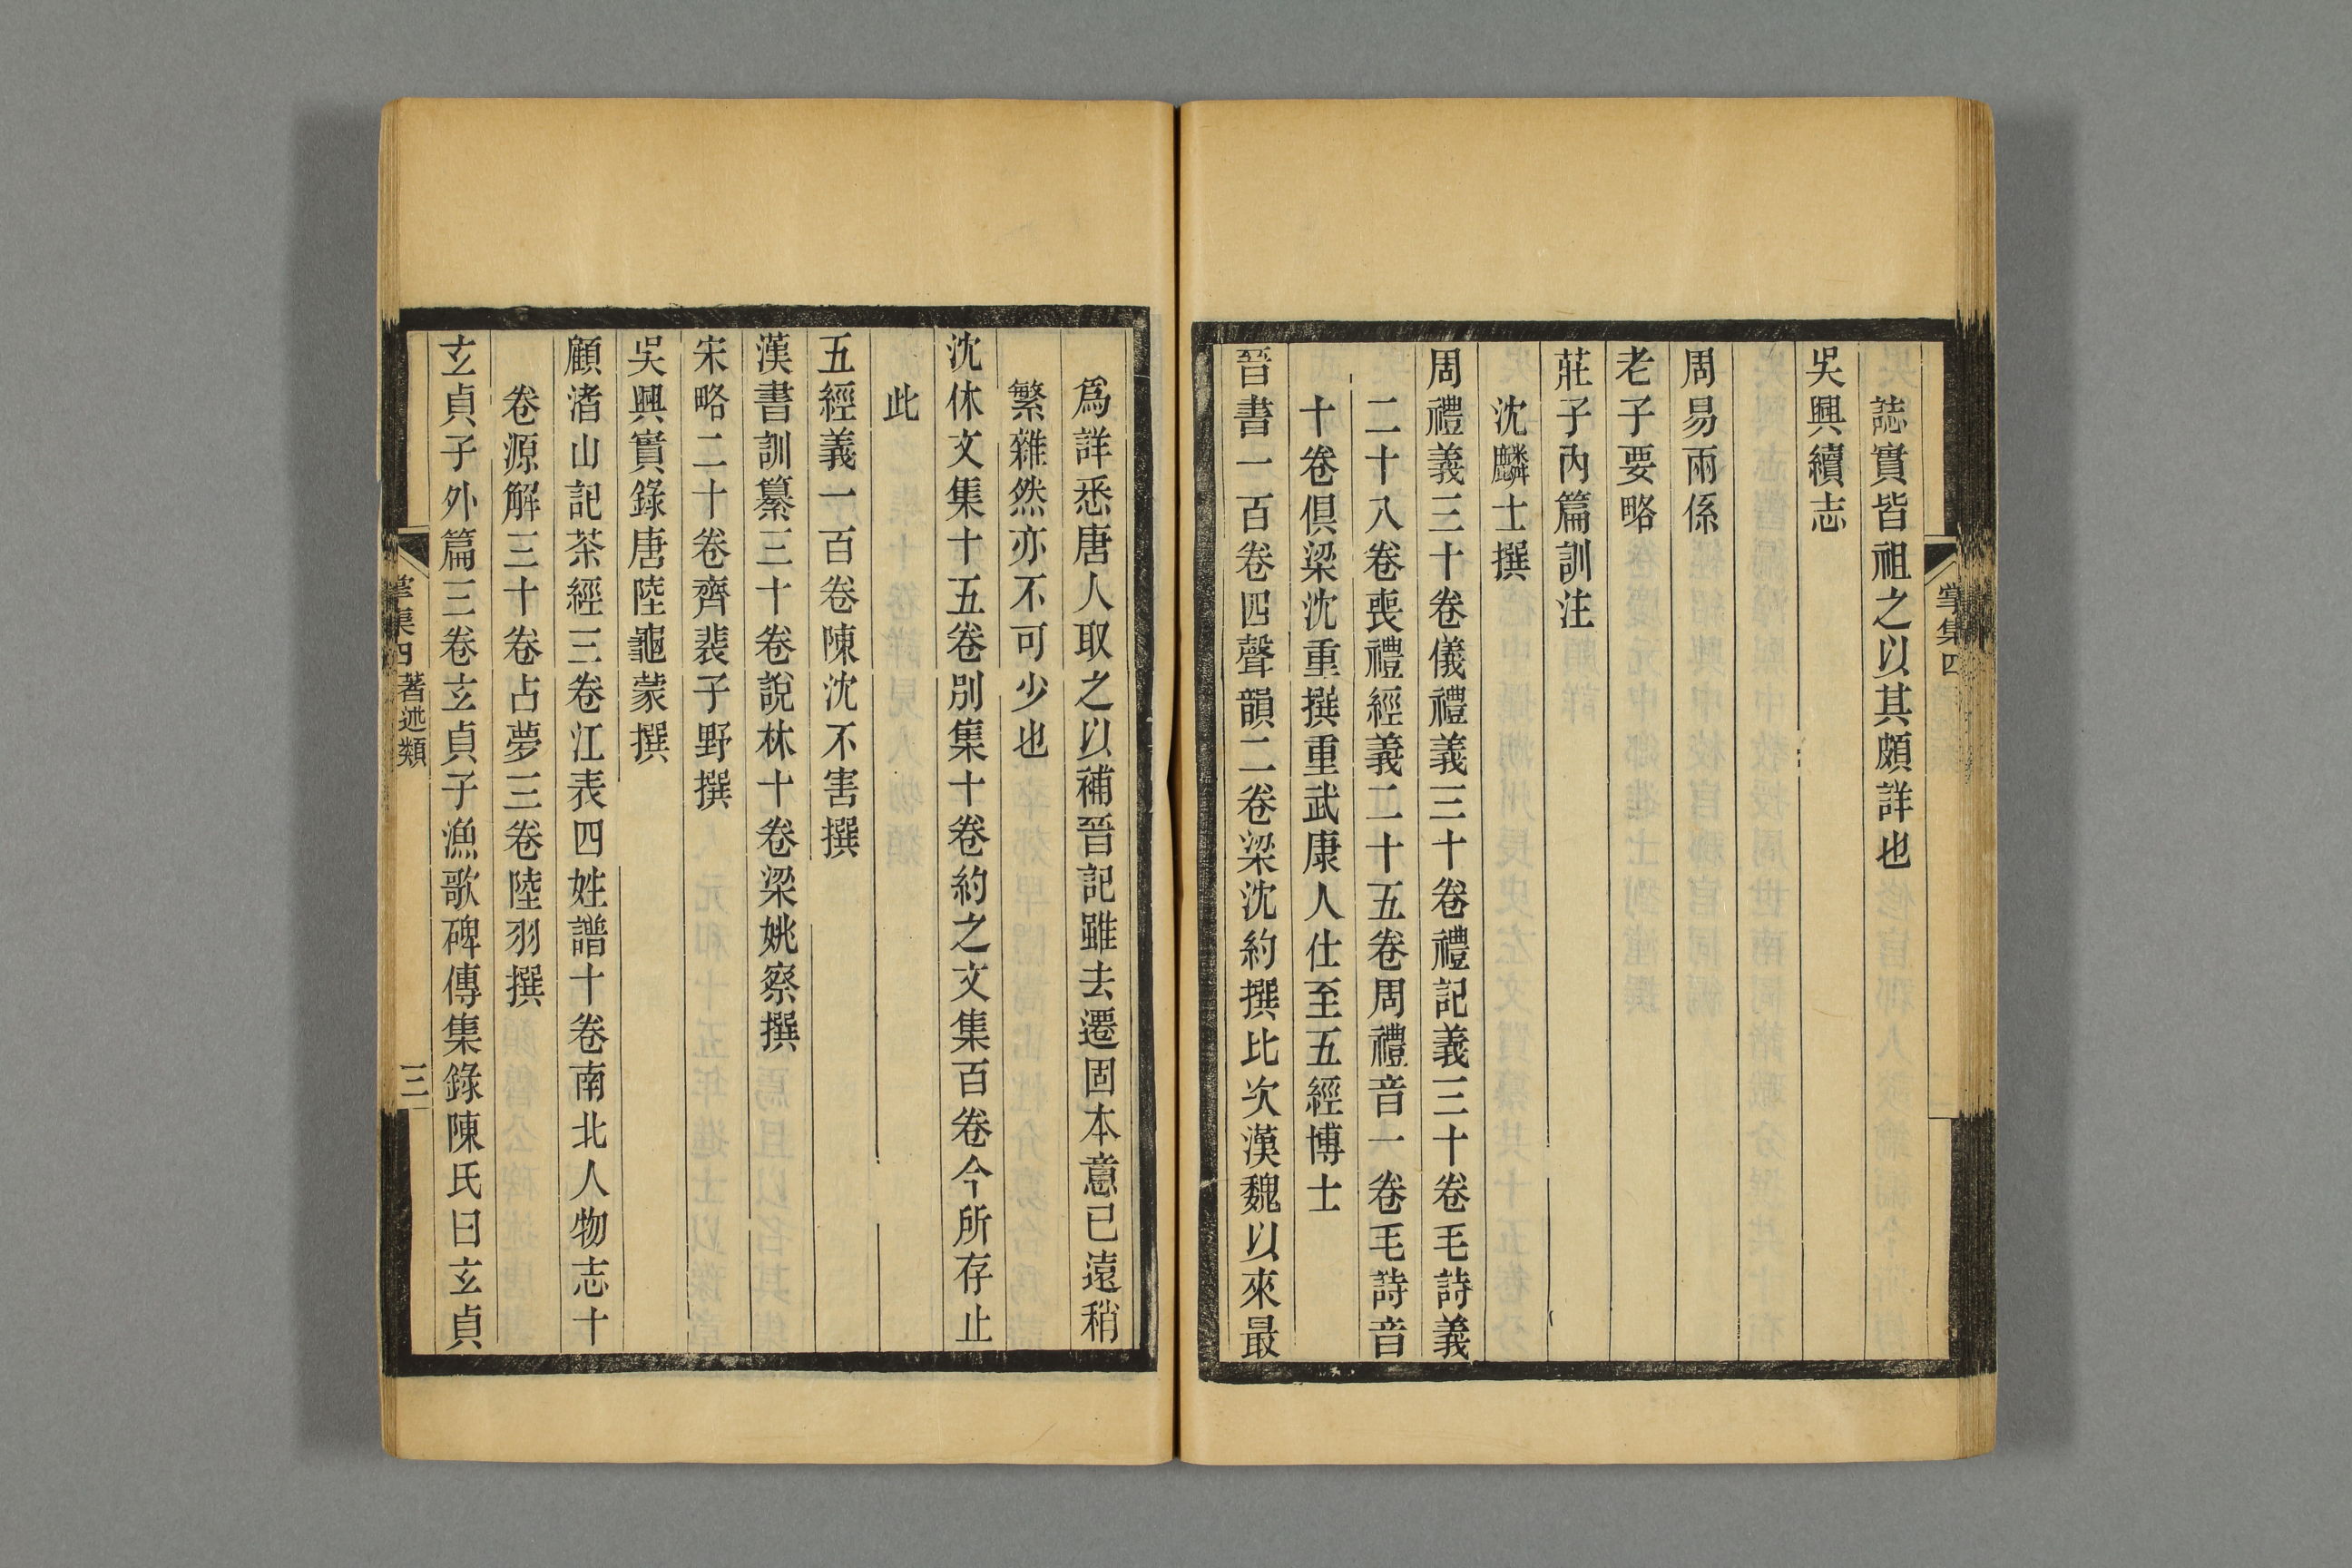 掌集四
誌實皆祖之以其頗詳也
吳興續志
周易兩係
老子要略
莊子內篇訓注
沈麟士撰
周禮義三十卷儀禮義三十卷禮記義三十卷毛詩義
二十八卷喪禮經義二十五卷周禮音一卷毛詩音
十卷俱梁沈重撰重武康人仕至五經博士
晉書一百卷四聲韻二卷梁沈約撰比次漢魏以來最
爲詳悉唐人取之以補晉記雖去遷固本意已遠稍
繁雜然亦不可少也
沈休文集十五卷別集十卷約之文集百卷今所存止
此
五經義一百卷陳沈不害撰
漢書訓纂三十卷說林十卷梁姚察撰
宋略二十卷齊裴子野撰
吳興實錄唐陸龜蒙撰
顧渚山記茶經三卷江表四姓譜十卷南北人物志十
卷源解三十卷占夢三卷陸羽撰
玄貞子外篇三卷玄貞子漁歌碑傳集錄陳氏曰玄貞
掌集四 著述類 三